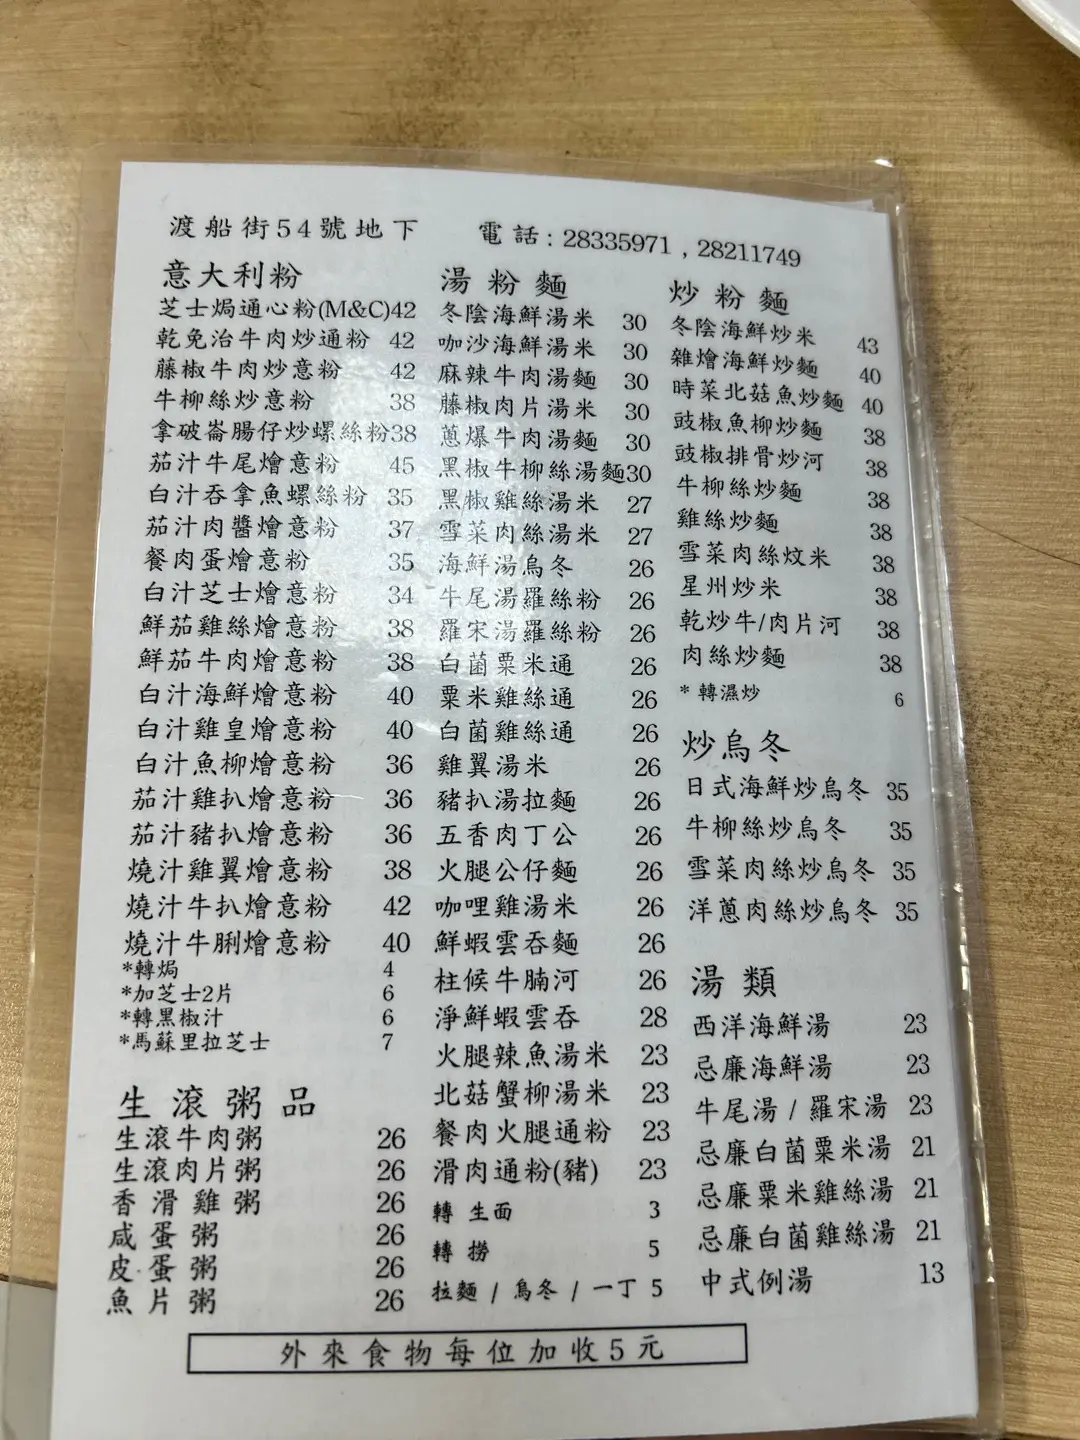 渡船街54號地下　電話: 28335971 , 28211749
意大利粉
芝士焗通心粉(M&C)42
乾免治牛肉炒通粉 42
藤椒牛肉炒意粉 42
牛柳絲炒意粉 38
拿破崙腸仔炒螺絲粉38
茄汁牛尾燴意粉 45
白汁吞拿魚螺絲粉 35
茄汁肉醬燴意粉 37
餐肉蛋燴意粉 35
白汁芝士燴意粉 34
鮮茄雞絲燴意粉 38
鮮茄牛肉燴意粉 38
白汁海鮮燴意粉 40
白汁雞皇燴意粉 40
白汁魚柳燴意粉 36
茄汁雞扒燴意粉 36
茄汁豬扒燴意粉 36
燒汁雞翼燴意粉 38
燒汁牛扒燴意粉 42
燒汁牛脷燴意粉 40
*轉焗 4
*加芝士2片 6
*轉黑椒汁 6
*馬蘇里拉芝士 7
生滾粥品
生滾牛肉粥 26
生滾肉片粥 26
香滑雞粥 26
咸蛋粥 26
皮蛋粥 26
魚片粥 26
湯粉麵
冬陰海鮮湯米 30
咖沙海鮮湯米 30
麻辣牛肉湯麵 30
藤椒肉片湯米 30
蔥爆牛肉湯麵 30
黑椒牛柳絲湯麵30
黑椒雞絲湯米 27
雪菜肉絲湯米 27
海鮮湯烏冬 26
牛尾湯羅絲粉 26
羅宋湯羅絲粉 26
白菌粟米通 26
粟米雞絲通 26
白菌雞絲通 26
雞翼湯米 26
豬扒湯拉麵 26
五香肉丁公 26
火腿公仔麵 26
咖哩雞湯米 26
鮮蝦雲吞麵 26
柱候牛腩河 26
淨鮮蝦雲吞 28
火腿辣魚湯米 23
北菇蟹柳湯米 23
餐肉火腿通粉 23
滑肉通粉(豬) 23
轉 生面 3
轉 撈 5
拉麵 / 烏冬 / 一丁 5
炒粉麵
冬陰海鮮炒米 43
雜燴海鮮炒麵 40
時菜北菇魚炒麵 40
豉椒魚柳炒麵 38
豉椒排骨炒河 38
牛柳絲炒麵 38
雞絲炒麵 38
雪菜肉絲炆米 38
星州炒米 38
乾炒牛/肉片河 38
肉絲炒麵 38
* 轉濕炒 6
炒烏冬
日式海鮮炒烏冬 35
牛柳絲炒烏冬 35
雪菜肉絲炒烏冬 35
洋蔥肉絲炒烏冬 35
湯類
西洋海鮮湯 23
忌廉海鮮湯 23
牛尾湯 / 羅宋湯 23
忌廉白菌粟米湯 21
忌廉粟米雞絲湯 21
忌廉白菌雞絲湯 21
中式例湯 13
外來食物每位加收5元